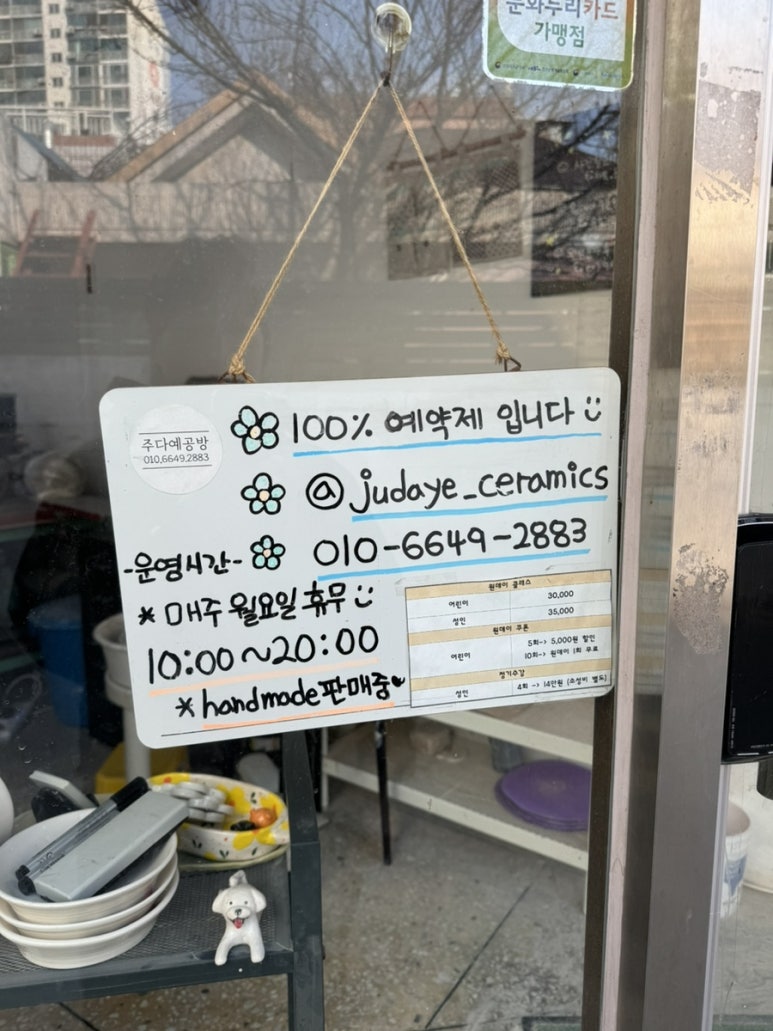 문화누리카드
가맹점
주다예공방
010.6649.2883
100% 예약제 입니다
@judaye_ceramics
010-6649-2883
-운영시간-
* 매주 월요일 휴무
10:00~20:00
* handmade판매중
원데이 클래스
어린이 30,000
성인 35,000
원데이 쿠폰
어린이 5회-> 5,000원 할인
10회-> 원데이 1회 무료
정기수강
성인 4회 -> 14만원 (소성비 별도)